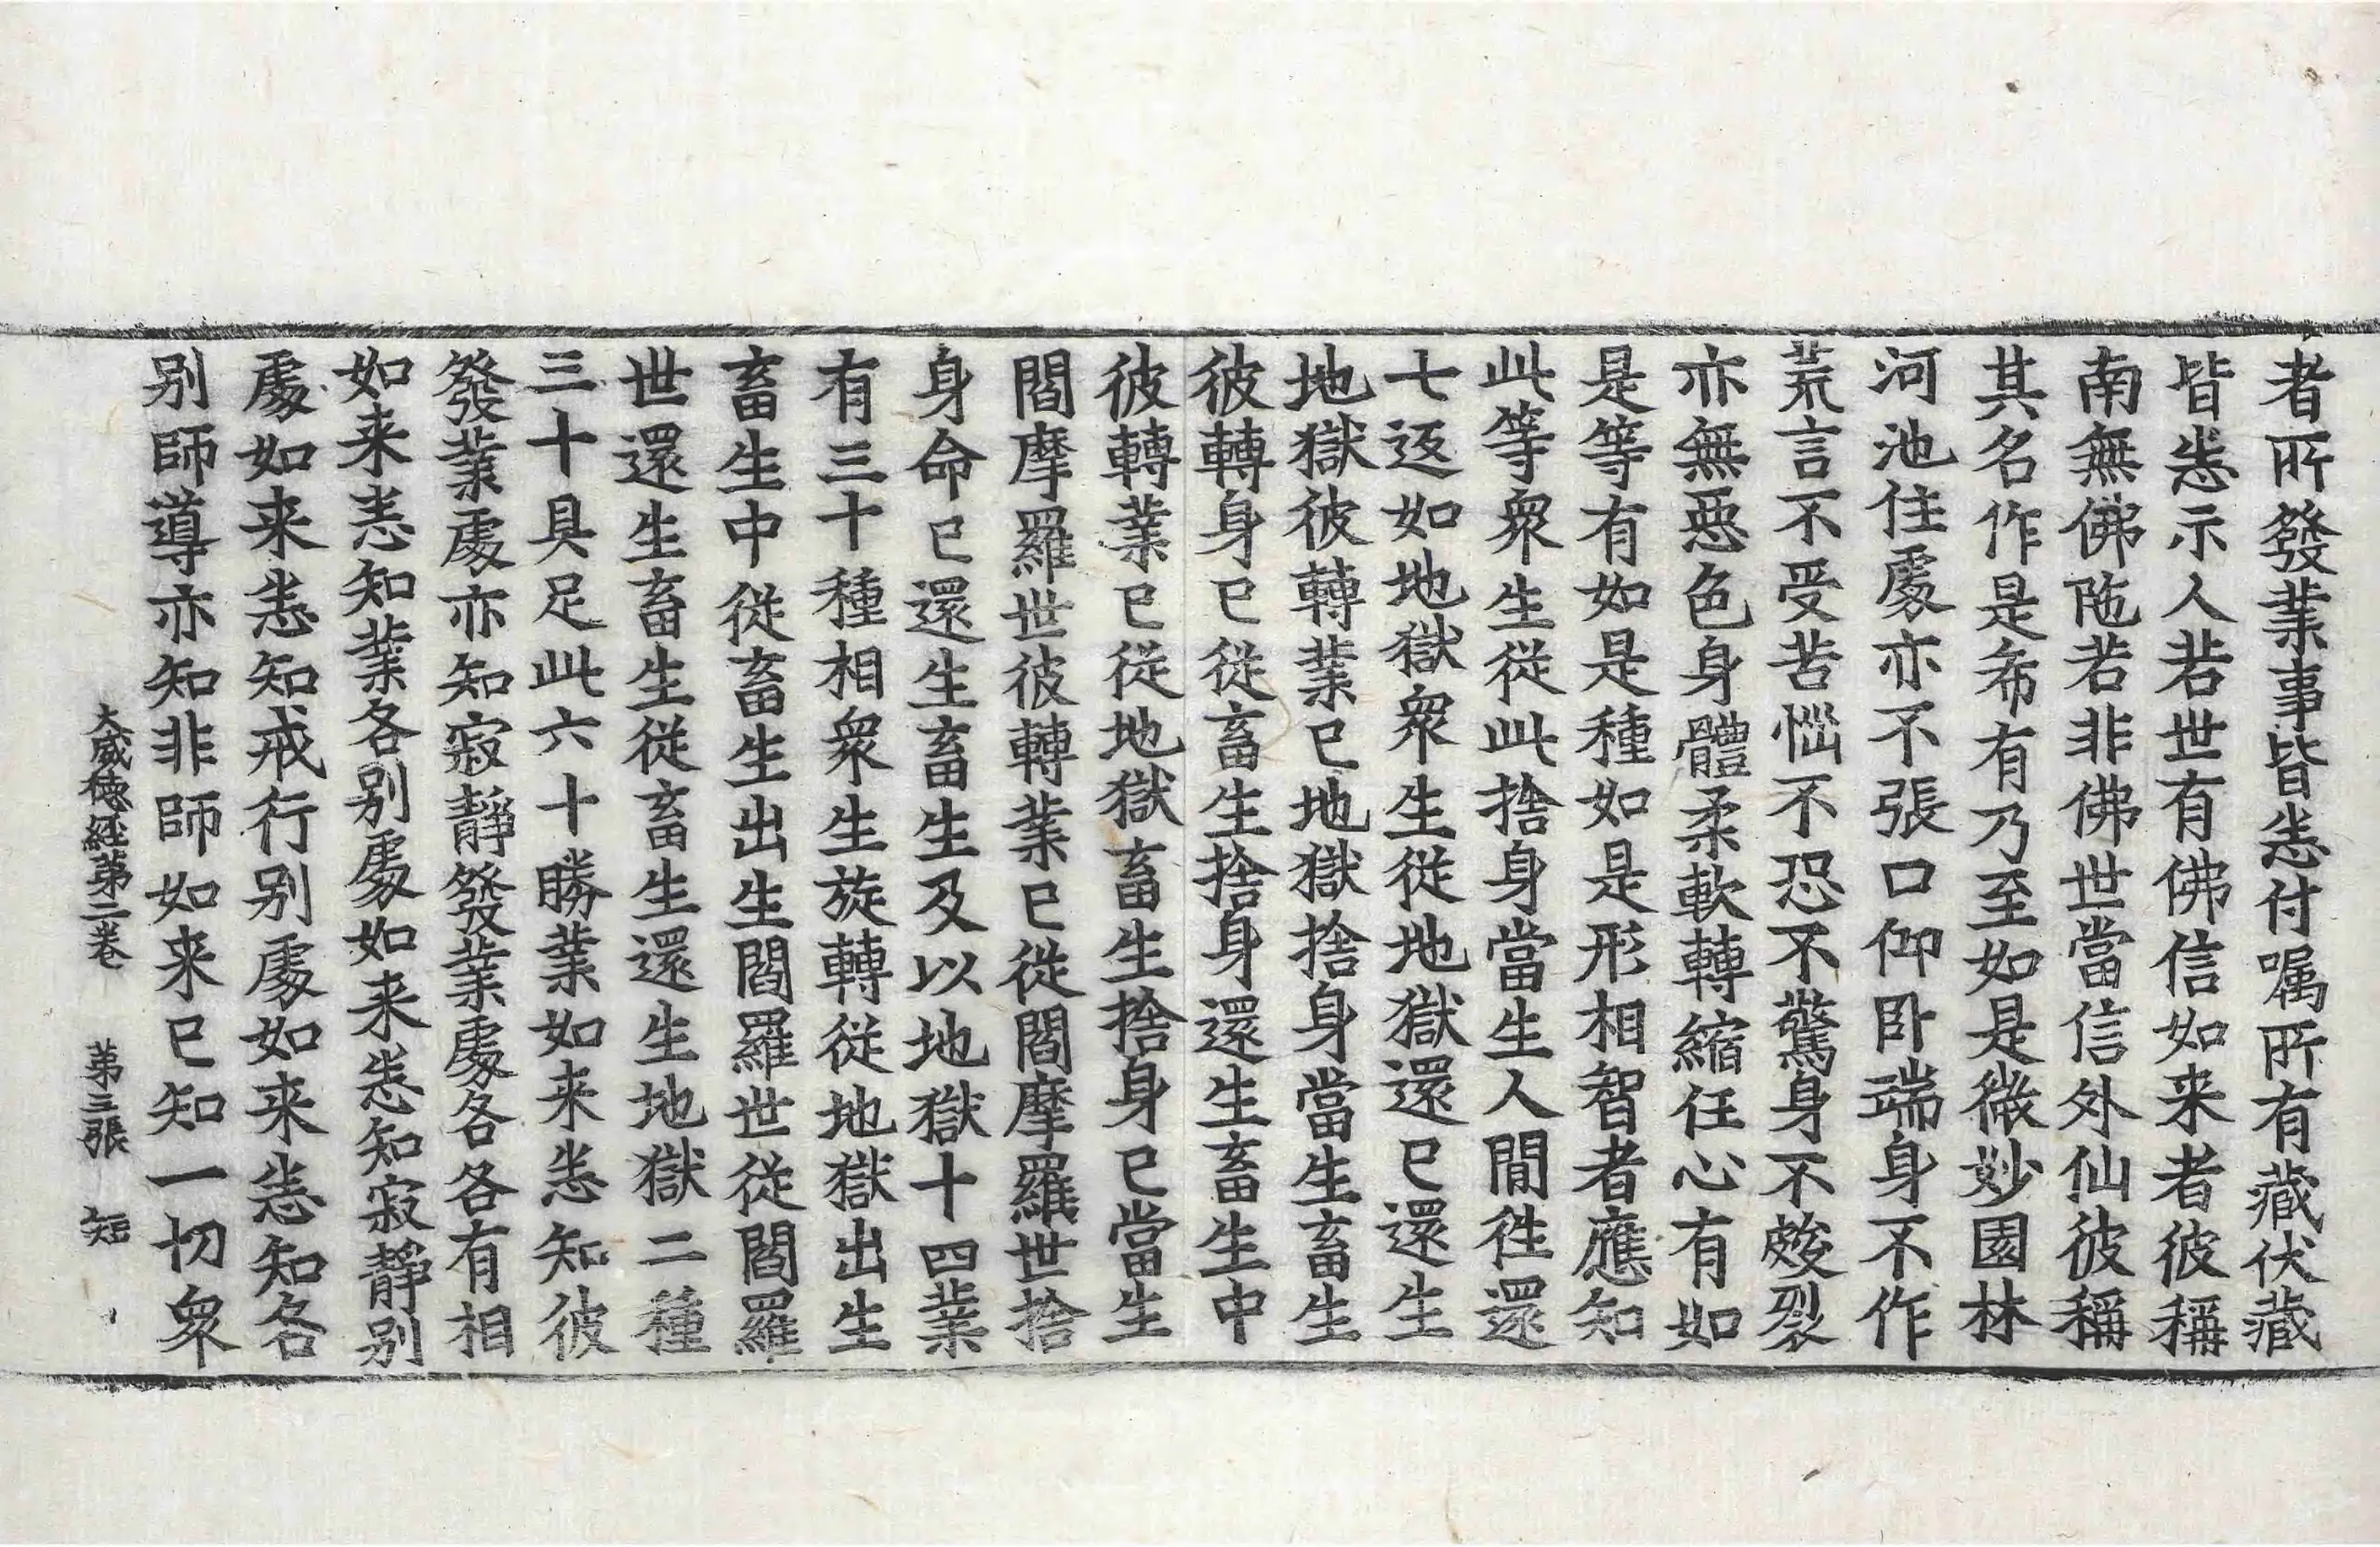 者所發業事皆悉付嘱所有藏伏藏
皆悉示人若世有佛信如来者彼稱
南無佛陁若非佛世當信外仙彼稱
其名作是希有乃至如是微妙園林
河池住處亦不張口仰卧端身不作
荒言不受苦惱不恐不驚身不皴裂
亦無惡色身體柔軟轉縮任心有如
是等有如是種如是形相智者應知
此等衆生從此捨身當生人間徃還
七返如地獄衆生從地獄還已還生
地獄彼轉業已地獄捨身當生畜生
彼轉身已從畜生捨身還生畜生中
彼轉業已從地獄畜生捨身已當生
閻摩羅世彼轉業已從閻摩羅世捨
身命已還生畜生及以地獄十四業
有三十種相衆生旋轉從地獄出生
畜生中從畜生出生閻羅世從閻羅
世還生畜生從畜生還生地獄二種
三十具足此六十勝業如来悉知彼
發業處亦知寂靜發業處各各有相
如来悉知業各别處如来悉知寂靜别
處如来悉知戒行别處如来悉知各
别師導亦知非師如来已知一切衆
大威徳經第二卷 第三張 短